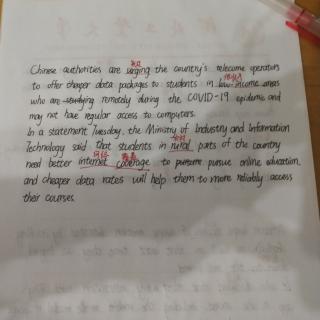 Chinese authorities are urging the country's telecome operators
to offer cheaper data packages to students in low-income areas
who are studying remotely during the COVID-19 epidemic and
may not have regular access to computers.
In a statement Tuesday, the Ministry of Industry and Information
Technology said that students in rural parts of the country
need better internet coverage to pursure pursue online education,
and cheaper data rates will help them to more reliably access
their courses.